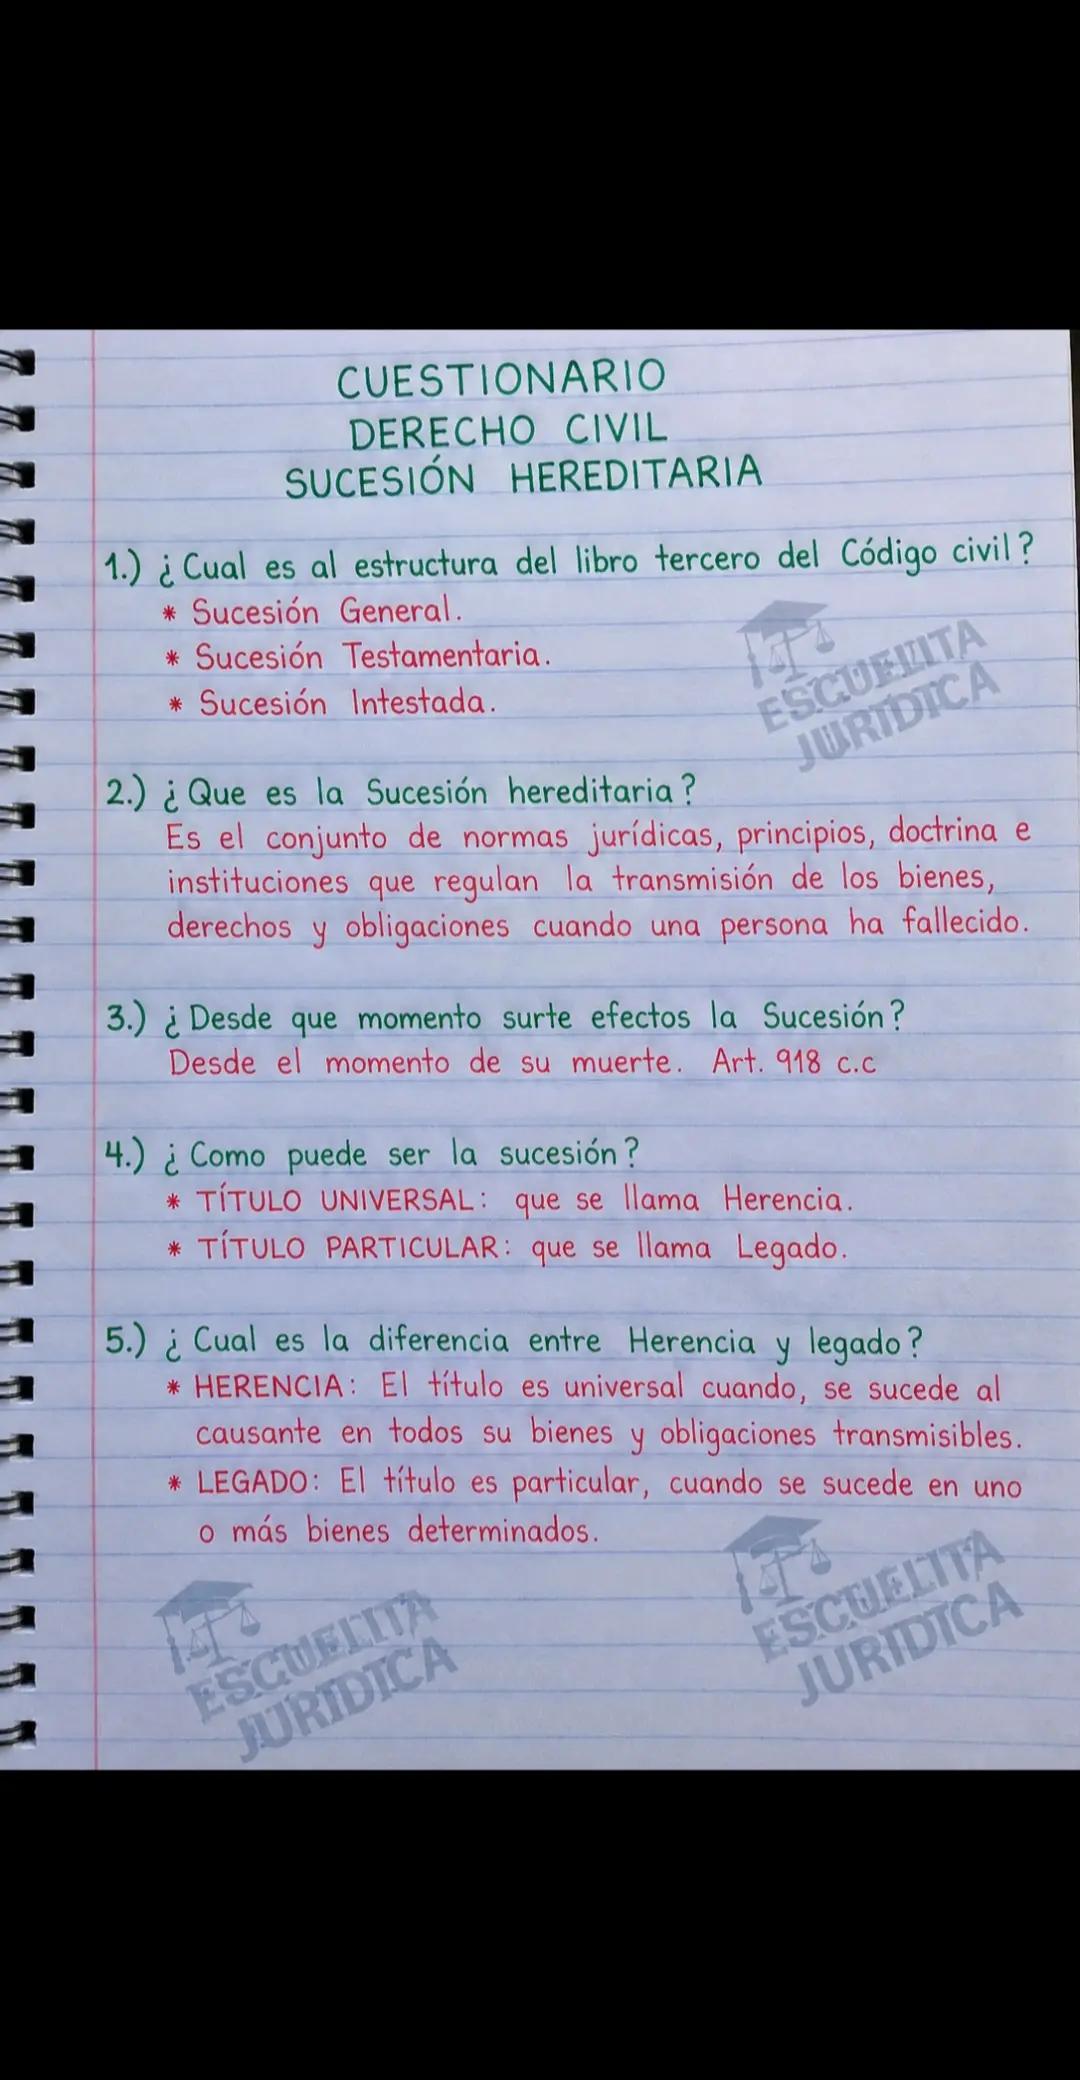 CUESTIONARIO
DERECHO CIVIL
SUCESIÓN HEREDITARIA
1.) ¿Cual es al estructura del libro tercero del Código civil?
* Sucesión General.
* Sucesión Testamentaria.
* Sucesión Intestada.
ESCUELITA
JURIDICA
2.) ¿Que es la Sucesión hereditaria?
Es el conjunto de normas jurídicas, principios, doctrina e
instituciones que regulan la transmisión de los bienes,
derechos y obligaciones cuando una persona ha fallecido.
3.) ¿Desde que momento surte efectos la Sucesión?
Desde el momento de su muerte. Art. 918 c.c
4.) ¿Como puede ser la sucesión?
* TÍTULO UNIVERSAL: que se llama Herencia.
* TÍTULO PARTICULAR: que se llama Legado.
5.) ¿Cual es la diferencia entre Herencia y legado?
* HERENCIA: El título es universal cuando, se sucede al
causante en todos su bienes y obligaciones transmisibles.
* LEGADO: El título es particular, cuando se sucede en uno
o más bienes determinados.
ESCUELITA
JURIDICA
ESCUELITA
JURIDICA